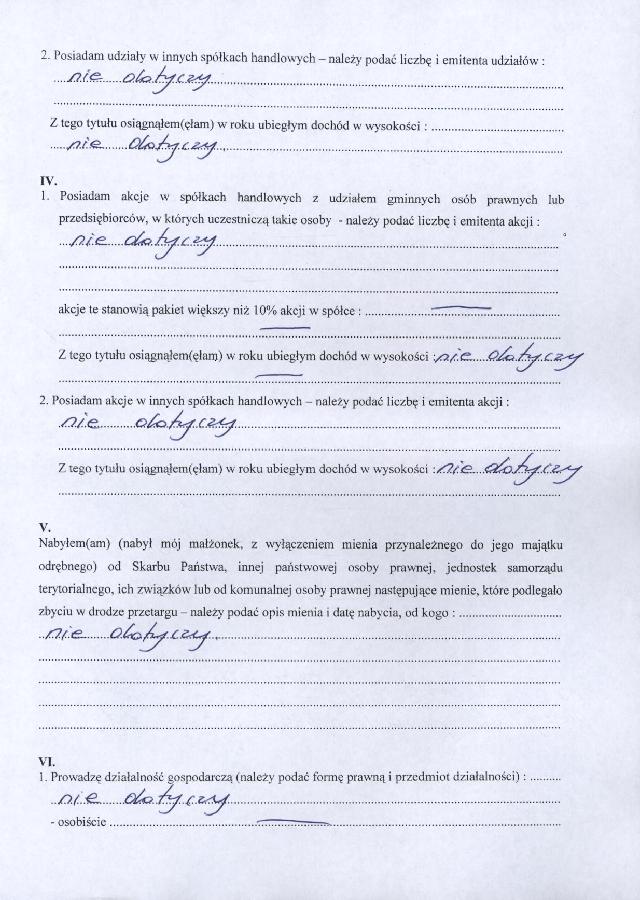 2. Posiadam udziały w innych spółkach handlowych – należy podać liczbę i emitenta udziałów :
nie dotyczy
Z tego tytułu osiągnąłem(ęłam) w roku ubiegłym dochód w wysokości :
nie dotyczy.
IV.
1. Posiadam akcje w spółkach handlowych z udziałem gminnych osób prawnych lub
przedsiębiorców, w których uczestniczą takie osoby - należy podać liczbę i emitenta akcji :
nie dotyczy
akcje te stanowią pakiet większy niż 10% akcji w spółce :
Z tego tytułu osiągnąłem(ęłam) w roku ubiegłym dochód w wysokości : nie dotyczy
2. Posiadam akcje w innych spółkach handlowych – należy podać liczbę i emitenta akcji :
nie dotyczy
Z tego tytułu osiągnąłem(ęłam) w roku ubiegłym dochód w wysokości : nie dotyczy
V.
Nabyłem(am) (nabył mój małżonek, z wyłączeniem mienia przynależnego do jego majątku
odrębnego) od Skarbu Państwa, innej państwowej osoby prawnej, jednostek samorządu
terytorialnego, ich związków lub od komunalnej osoby prawnej następujące mienie, które podlegało
zbyciu w drodze przetargu – należy podać opis mienia i datę nabycia, od kogo :
nie dotyczy.
VI.
1. Prowadzę działalność gospodarczą (należy podać formę prawną i przedmiot działalności) :
nie dotyczy
- osobiście